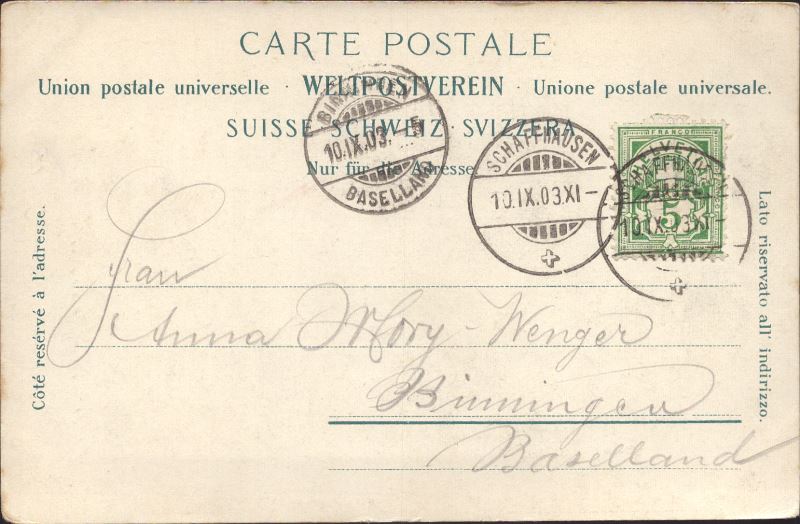 CARTE POSTALE
Union postale universelle · WELTPOSTVEREIN · Unione postale universale.
SUISSE. SCHWEIZ. SVIZZERA.
Nur für die Adresse
Côté reservé à l'adresse.
Lato riservato all' indirizzo.
BASELLAND
10.IX.03.
SCHAFFHAUSEN
10.IX.03.XI–
FRANCO
5
10.IX.03.XI–
Frau
Anna Mory-Wenger
Binningen
Baselland